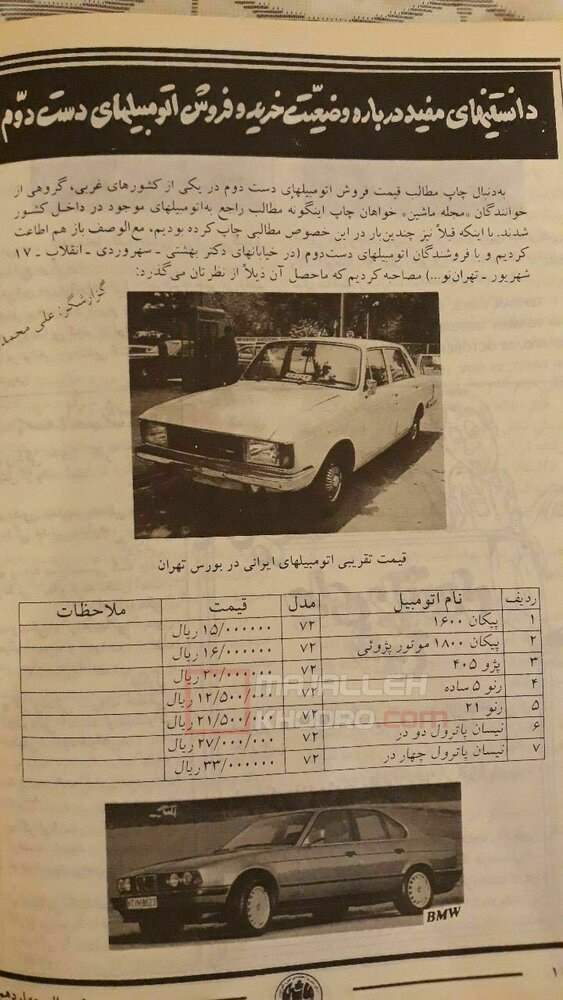 دانستنیهای مفید درباره وضعیّت خرید و فروش اتومبیلهای دست دوّم
به‌دنبال چاپ مطالب قیمت فروش اتومبیلهای دست دوم در یکی از کشورهای غربی، گروهی از
خوانندگان «مجله ماشین» خواهان چاپ اینگونه مطالب راجع به‌اتومبیلهای موجود در داخل کشور
شدند. با اینکه قبلاً نیز چندین‌بار در این خصوص مطالبی چاپ کرده بودیم، مع‌الوصف باز هم اطاعت
کردیم و با فروشندگان اتومبیلهای دست‌دوم (در خیابانهای دکتر بهشتی ـ سهروردی ـ انقلاب ـ ۱۷
شهریور ـ تهران‌نو...) مصاحبه کردیم که ماحصل آن ذیلاً از نظرتان می‌گذرد:
گزارشگر: علی محمد
قیمت تقریبی اتومبیلهای ایرانی در بورس تهران
ردیف نام اتومبیل مدل قیمت ملاحظات
۱ پیکان ۱۶۰۰ ۷۲ ۱۵/۰۰۰۰۰۰ ریال
۲ پیکان ۱۸۰۰ موتور پژوئی ۷۲ ۱۶/۰۰۰۰۰۰ ریال
۳ پژو ۴۰۵ ۷۲ ۲۰/۰۰۰۰۰۰ ریال
۴ رنو ۵ ساده ۷۲ ۱۲/۵۰۰/۰۰۰ ریال
۵ رنو ۲۱ ۷۲ ۲۱/۵۰۰/۰۰۰ ریال
۶ نیسان پاترول دو در ۷۲ ۲۷/۰۰۰/۰۰۰ ریال
۷ نیسان پاترول چهار در ۷۲ ۳۳/۰۰۰۰۰۰ ریال
MAJALLEH
KHODRO.com
BMW